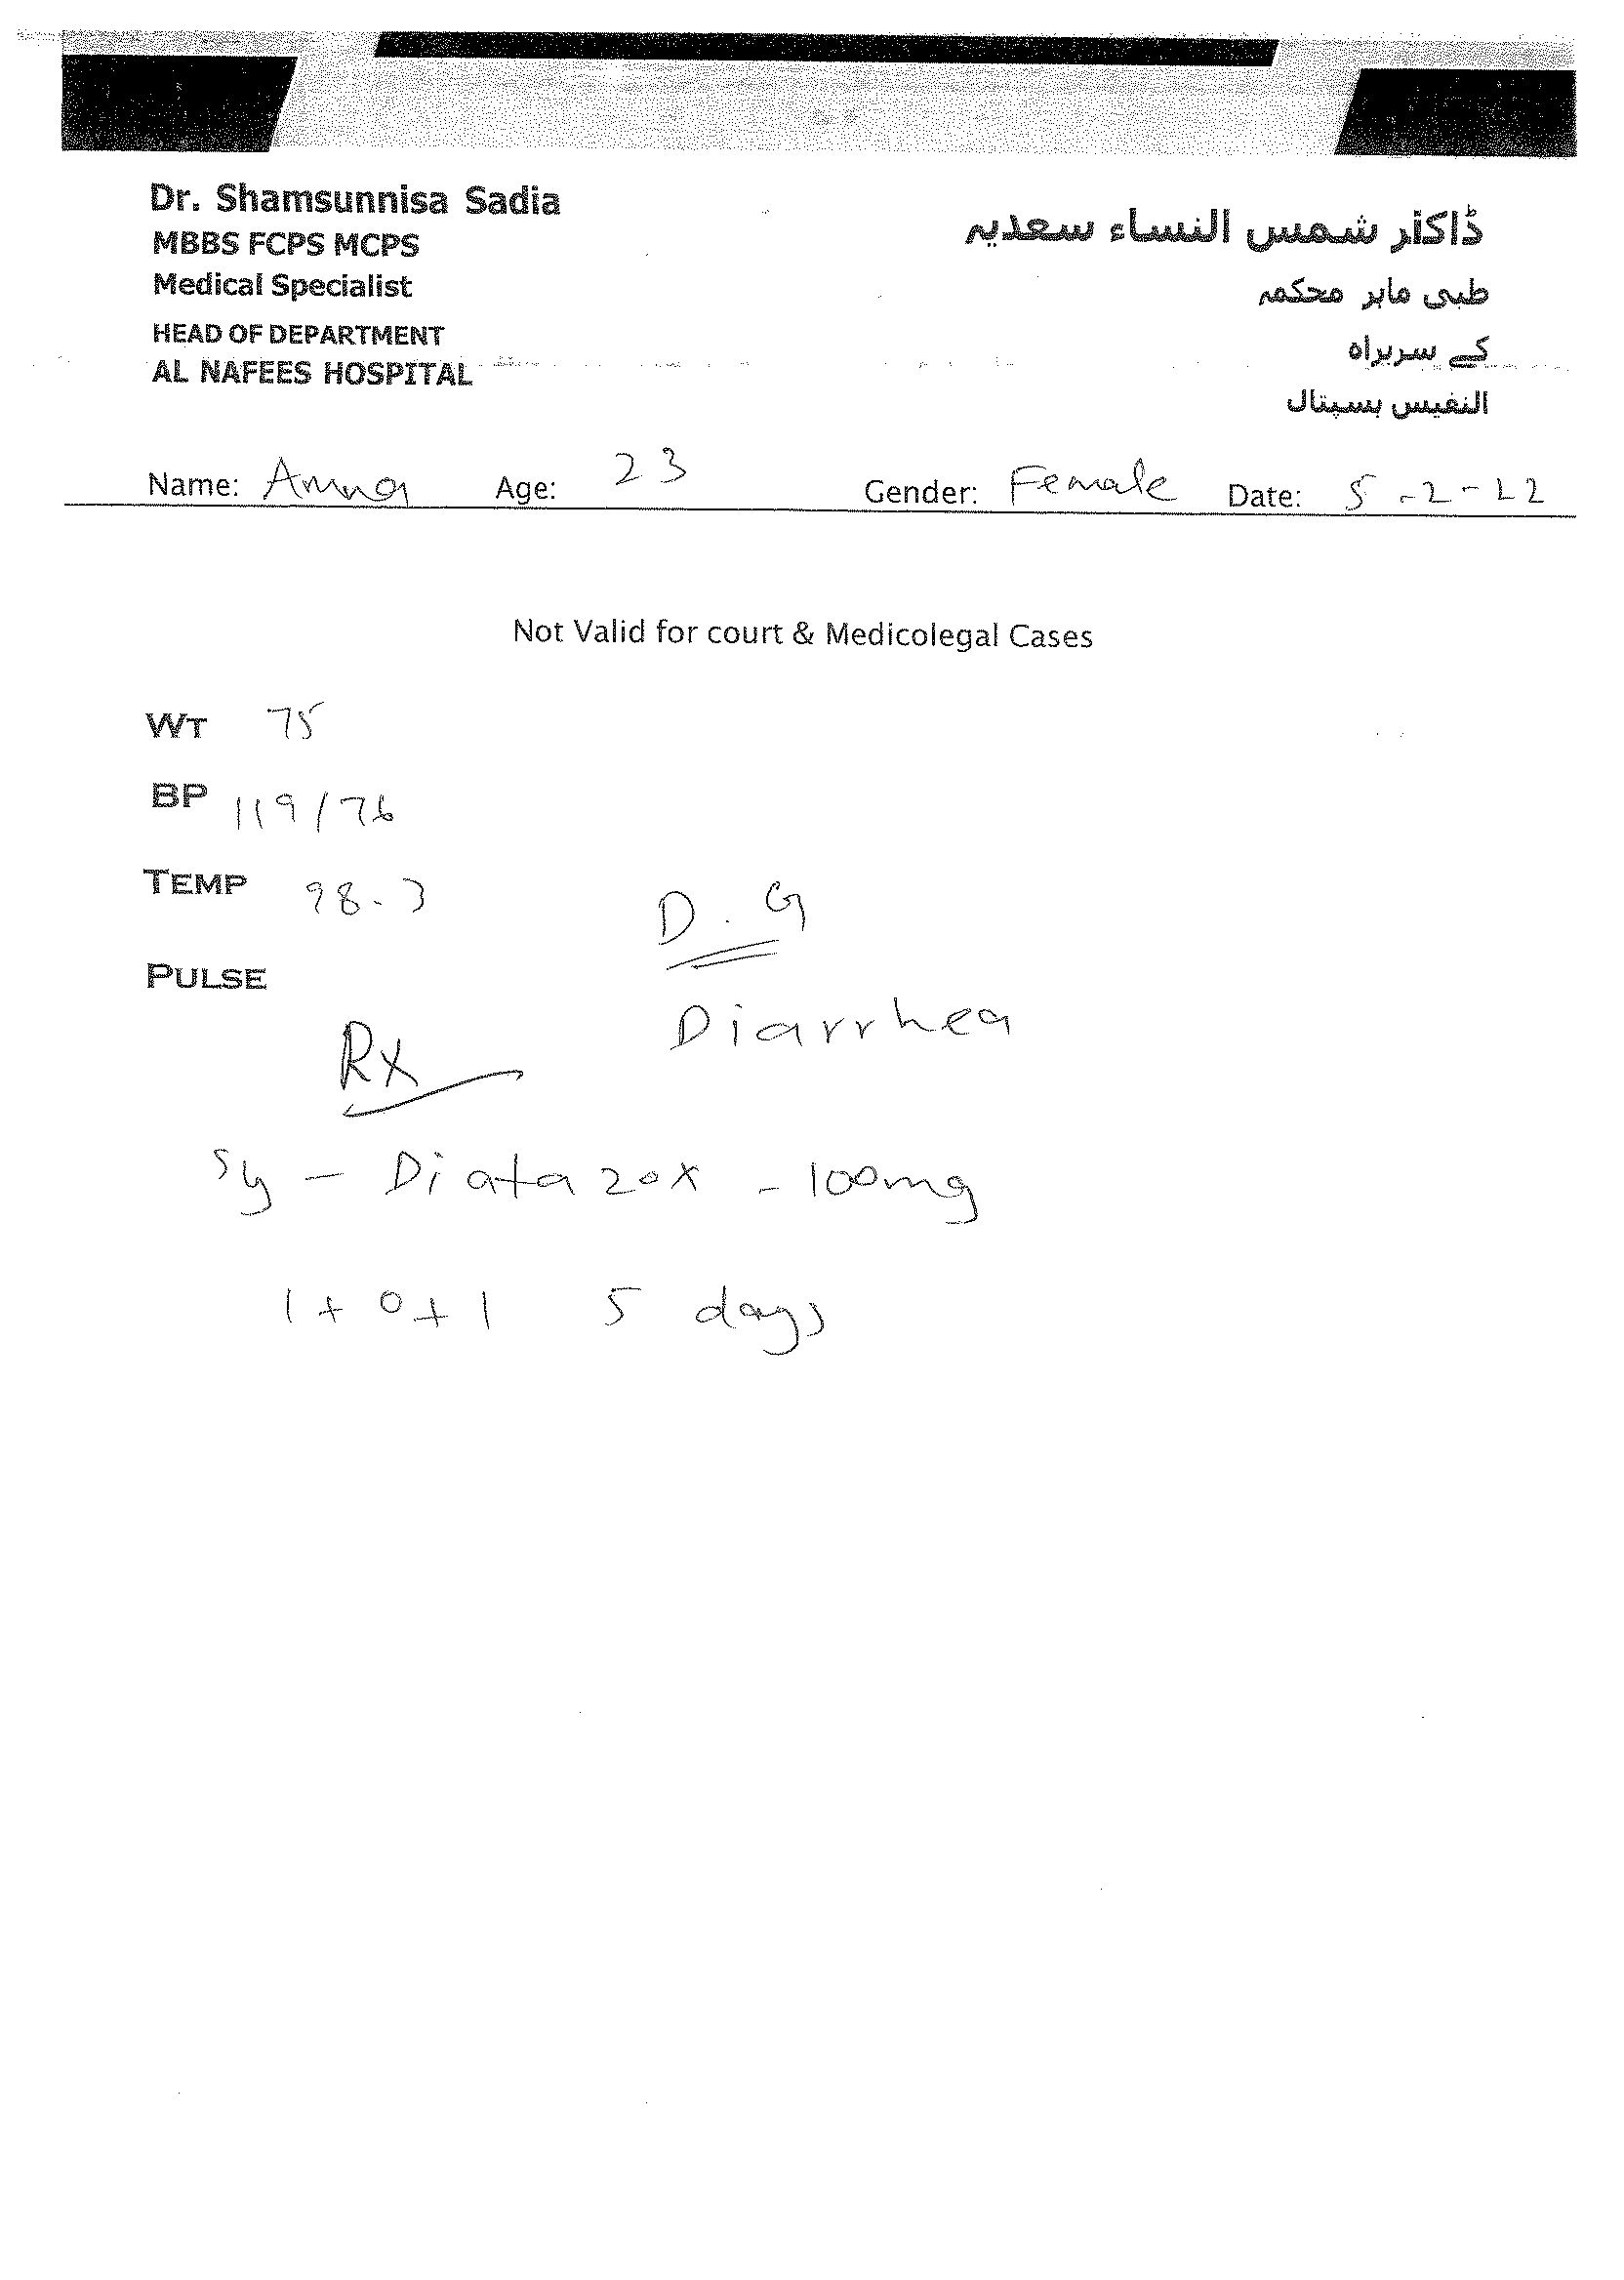 Dr. Shamsunnisa Sadia
MBBS FCPS MCPS
Medical Specialist
HEAD OF DEPARTMENT
AL NAFEES HOSPITAL
ڈاکٹر شمس النساء سعدیہ
طبی ماہر محکمہ
کے سربراہ
النفیس ہسپتال
Name: Amna Age: 23 Gender: Female Date: 5-2-22
Not Valid for court & Medicolegal Cases
WT 75
BP 119/76
TEMP 98.3
D.G
PULSE
Diarrhea
Rx
Sy - Diatazox - 100mg
1+0+1 5 days